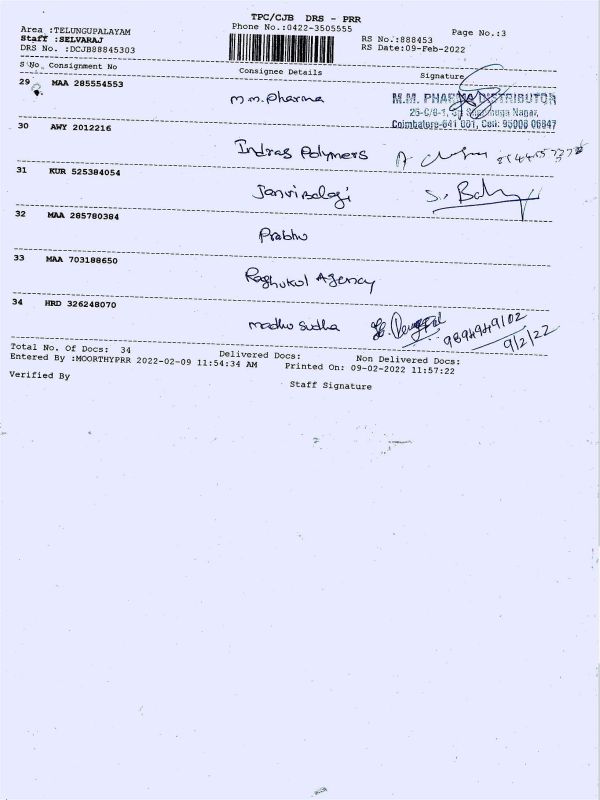 TPC/CJB DRS - PRR
Area :TELUNGUPALAYAM Phone No.:0422-3505555 Page No.:3
Staff :SELVARAJ RS No.:888453
DRS No. :DCJB88845303 RS Date:09-Feb-2022
S No Consignment No Consignee Details Signature
29 MAA 285554553 M.M. Pharma M.M. PHARMA DISTRIBUTOR
Nagar,
Coimbatore-641 001, Cell: 95008 06847
30 AWY 2012216
Indras Polymers
31 KUR 525384054
Janvi Balaji
32 MAA 285780384
Prabhu
33 MAA 703188650
Raghukul Agency
34 HRD 326248070
madhu sudha 9894949102
9/2/22
Total No. Of Docs: 34 Delivered Docs: Non Delivered Docs:
Entered By :MOORTHYPRR 2022-02-09 11:54:34 AM Printed On: 09-02-2022 11:57:22
Verified By Staff Signature